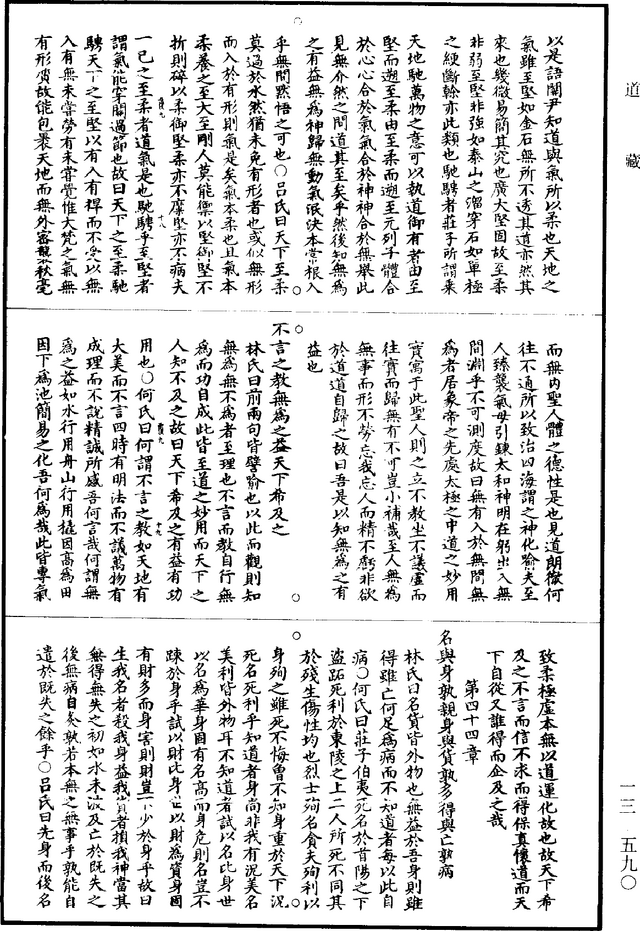 道藏
以是語關尹知道與氣所以柔也天地之
氣雖至堅如金石無所不透其道亦然其
來也幾微易簡其究也廣大堅固故至柔
非弱至堅非強如泰山之溜穿石如單極
之綆斷幹亦此類也馳騁者莊子所謂乘
天地馳萬物之意可以執道御有者由至
堅而遡至柔由至柔而遡至元列子體合
於心心合於氣氣合於神神合於無舉此
見無介然之間道其至矣乎然後知無為
之有益無為神歸無動氣泯決本當根入
乎無間默悟之可也○呂氏曰天下至柔
莫過於水然猶未免有形者也或似無形
而入於有形則氣是矣氣本柔也且氣本
柔養之至大至剛人莫能禦以堅御堅不
折則碎以柔御堅柔亦不靡堅亦不病夫
一已之至柔者道氣是也馳騁乎至堅者
謂氣能穿關過節也故曰天下之至柔馳
騁天下之至堅以有入有捍而不受以無
入有無未嘗勞有未嘗覺惟大梵之氣無
有形質故能包裹天地而無外密襲秋毫
而無內聖人體之德性是也見道朗徹何
往不通所以致治四海謂之神化踰夫至
人臻襲氣母引鍊太和神明在躬出入無
間淵乎不可測度故曰無有入於無間無
為者居象帝之先處太極之中道之妙用
實寓于此聖人則之立不教坐不議虛而
往實而歸無有不可豈小補哉至人無為
無事而形不勞忘我忘人而精不虧非欲
於道道自歸之故曰吾是以知無為之有
益也
不言之教無為之益天下希及之
林氏曰前兩句皆譬喻也以此而觀則知
無為無不為者至理也不言而教自行無
為而功自成此皆至道之妙用而天下之
人知不及之故曰天下希及之有益有功
用也○何氏曰何謂不言之教如天地有
大美而不言四時有明法而不議萬物有
成理而不說精誠所感吾何言哉何謂無
為之益如水行用舟山行用橇因高為田
因下為池簡易之化吾何為哉此皆專氣
致柔極虛本無以道運化故也故天下希
及之不言而信不求而得保真懷道而天
下自從又誰得而企及之哉
第四十四章
名與身孰親身與貨孰多得與亡孰病
林氏曰名貨皆外物也無益於吾身則雖
得雖亡何足為病而不知道者每以此自
病○何氏曰莊子伯夷死名於首陽之下
盜跖死利於東陵之上二人所死不同其
於殘生傷性均也烈士殉名貪夫殉利以
身殉之雖死不悔曾不知身重於天下況
死名死利乎知道者身尚非我有況美名
美利皆外物耳不知道者試以名比身世
以名為華身固有名高而身危則名豈不
踈於身乎試以財比身世以財為資身固
有財多而身害則財豈不少於身乎故曰
生我名者殺我身益我貨者損我神當其
無得無失之初如水未波及亡於既失之
後無病自灸孰若本無之無事乎孰能自
遣於既失之餘乎○呂氏曰先身而後名
一三 五九○